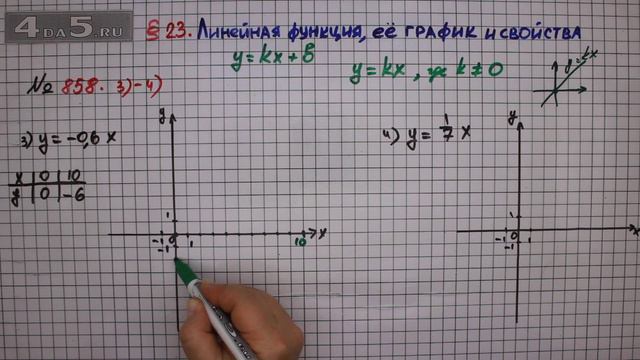 4DA5.RU
§ 23. Линейная функция, её график и свойства
y = kx + b
y = kx, где k ≠ 0
y = kx
№ 858. 3)-4)
3) y = -0,6 x
x 0 10
y 0 -6
y
1
-1 0 1 10 x
-1
4) y = 1/7 x
y
1
-1 0 1 x
-1